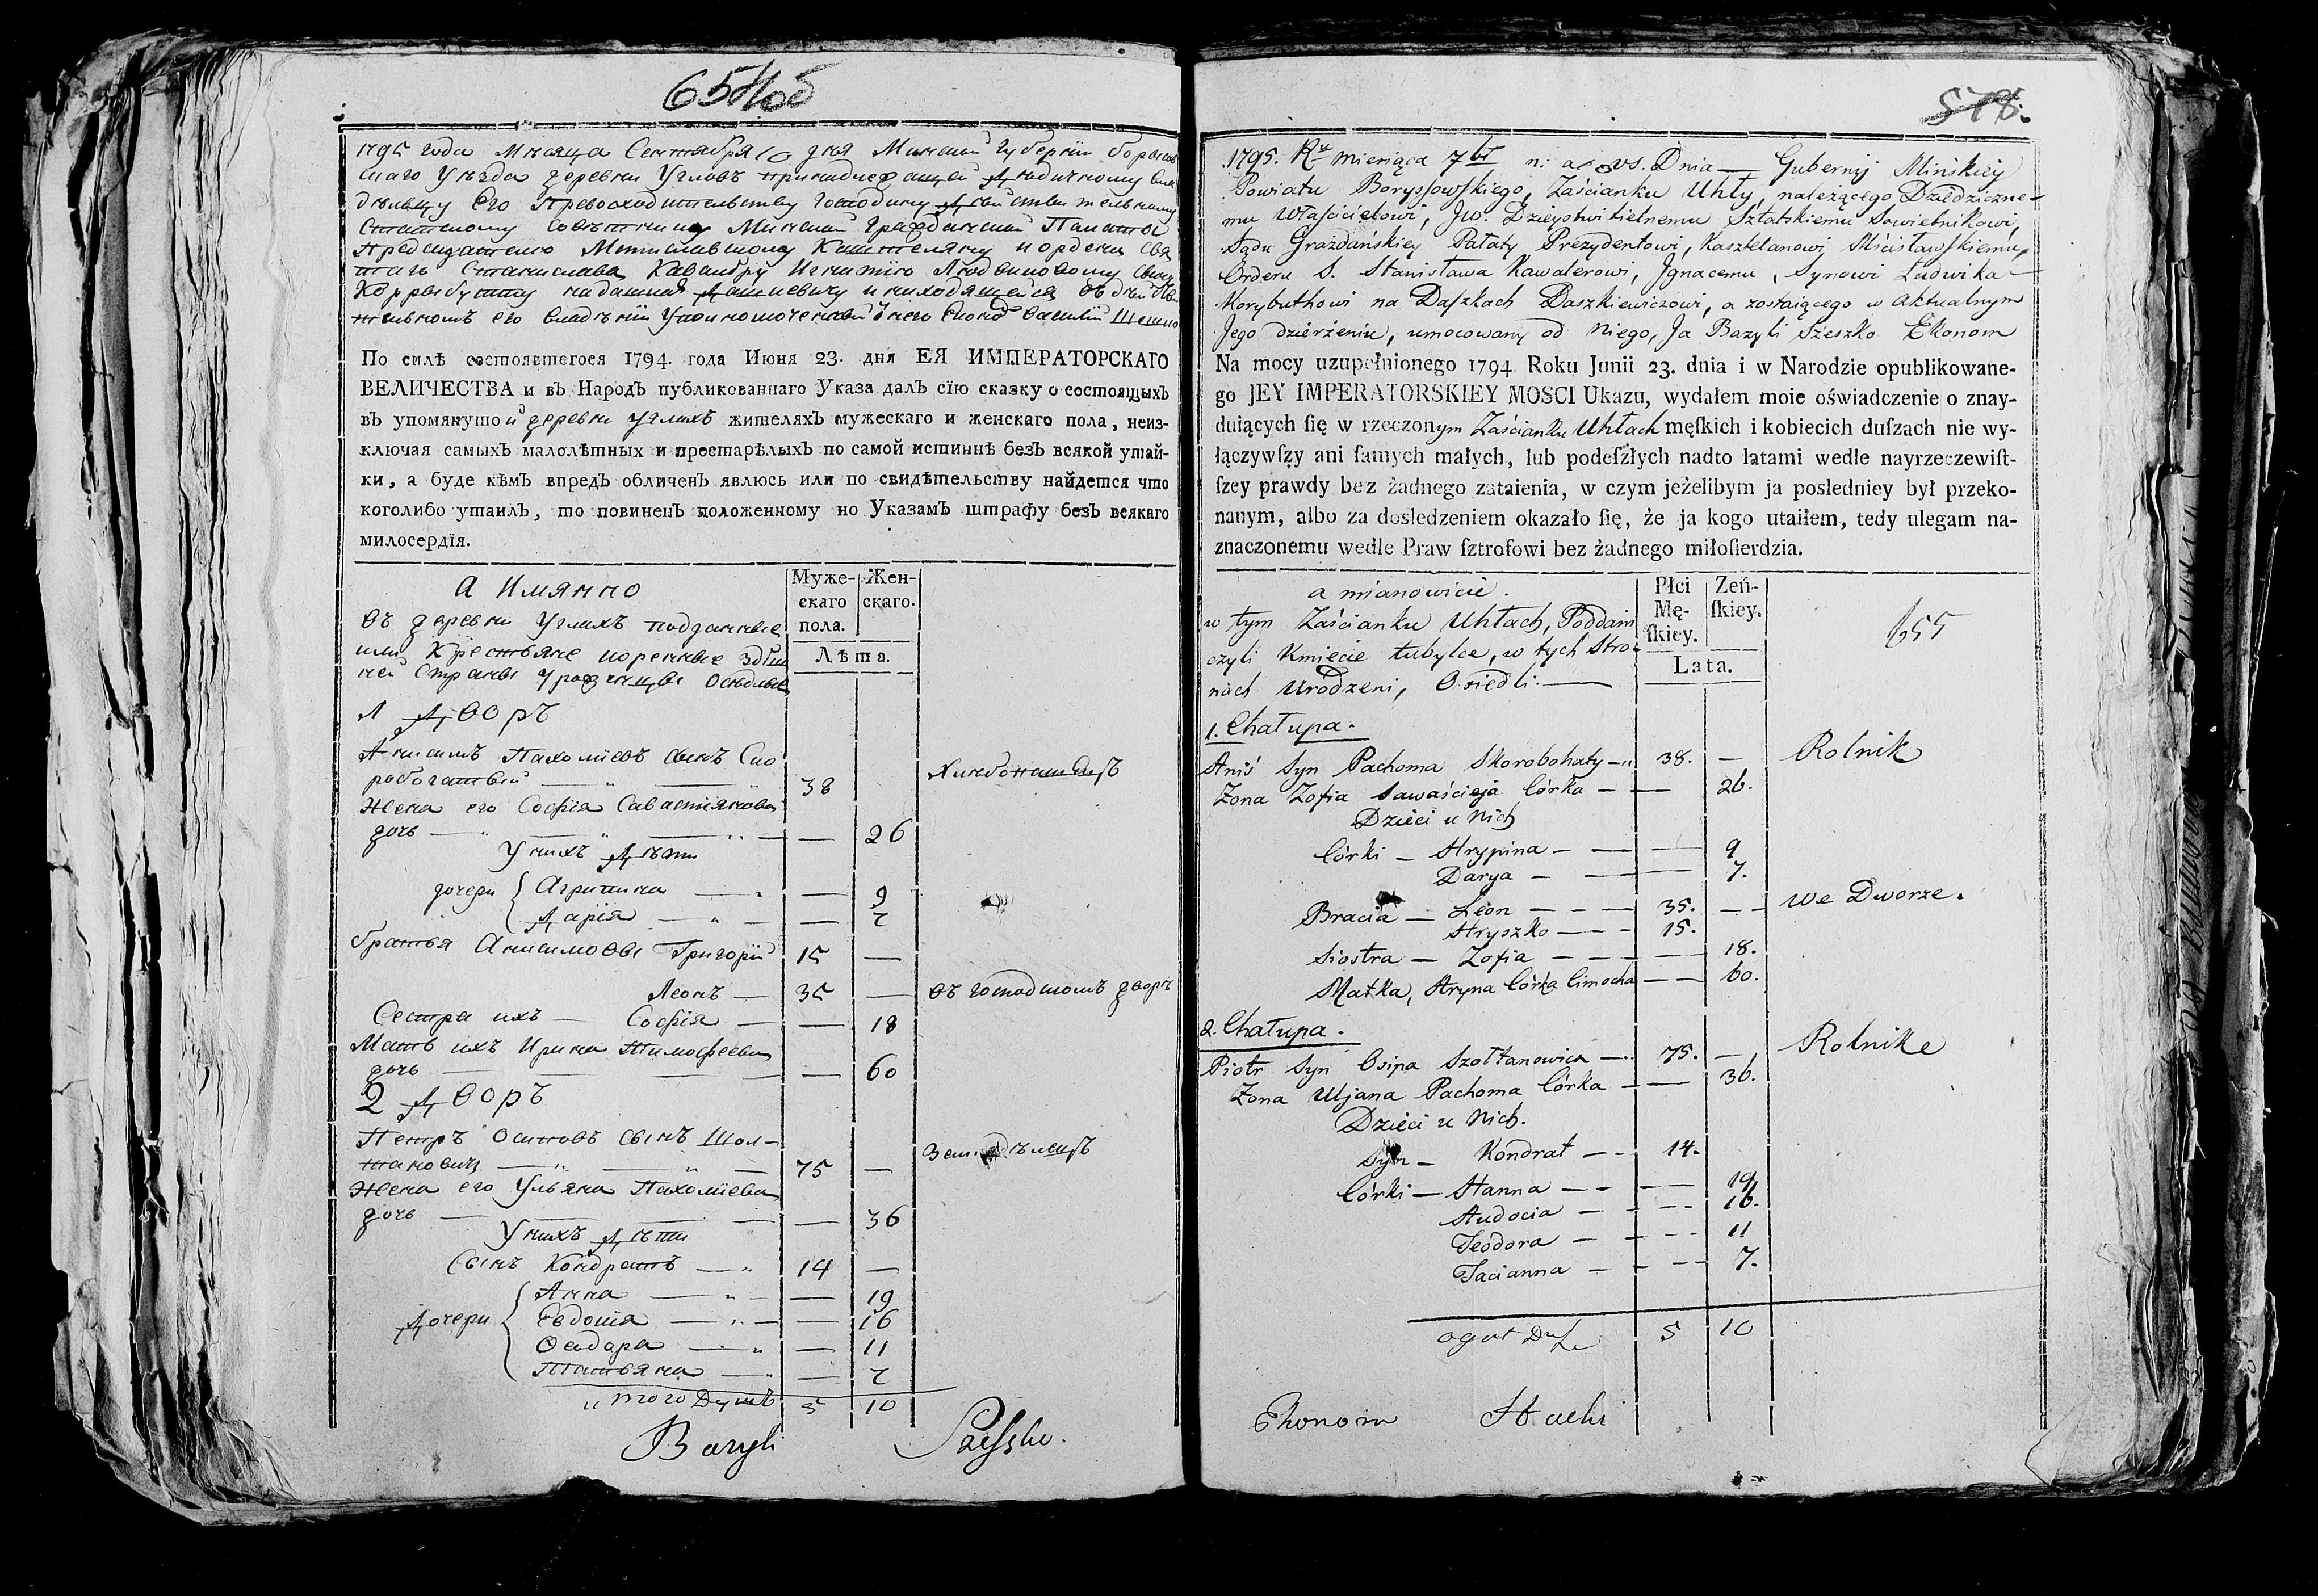 654об
1795 года Мѣсяца Сентября 10 дня Минской Губерніи Борысов
скаго Уѣзда деревни Угловъ принадлежащей Дѣдичному Вла
дѣльцу Его Превосходительству Господину Дѣйствительному
Статскому Совѣтнику Минской Гражданской Палаты
Предсидателю Мстиславскому Каштеляну и ордена Свя
таго Станислава Кавалѣру Игнатію Людвиковому Сыну
Корыбутту на Дашкахъ Дашкевичу и находящейся въ дѣй
тивномъ его владѣніи Уполномоченный Економъ Василій Шешко
По силѣ состоявшегося 1794 года Июня 23. дня ЕЯ ИМПЕРАТОРСКАГО
ВЕЛИЧЕСТВА и въ НародЪ публикованнаго Указа далЪ сїю сказку о состоящыхЪ
въ упомянутой деревни Углахъ жителяхЪ мужескаго и женскаго пола, неиз-
ключая самыхЪ малолѣтныхъ и престарѣлыхЪ по самой истиннѣ безЪ всякой утай-
ки, а буде кѣмЪ впредЪ обличенЪ явлюсь или по свидѣтельству найдется что
коголибо утаилЪ, то повиненЪ положенному по УказамЪ штрафу безЪ всякаго
милосердїя.
А Имянно
Муже-
скаго
пола.
Жен-
скаго.
Лѣта.
Въ деревни Углахъ подданные
или Крестьяне коренные здѣш
ней Страны урожинцы Осѣдлые
1 Дворъ
Анисимъ Пахоміевъ сынъ Ско
робогатый 38 Хлибопашецъ
Жена его Софія Савастіянова
дочь — 26
У нихъ Дѣти
дочери Агрипина — 9
Дарія — 7
братья Анисимовы Григорій 15 —
Леонъ — 35 — въ господскомъ дворѣ
Сестра ихъ — Софія — 18
Мать ихъ Ирина Тимофеева
дочь — 60
2 Дворъ
Петръ Осиповъ сынъ Шол-
танович — 75 — Земледѣлецъ
Жена его Ульяна Пахоміева
дочь — 36
У нихъ Дѣти
Сынъ Кондратъ — 14 —
Дочери Анна — 19
Евдокія — 16
Феадора — 11
Татьяна — 7
итого Душъ 5 10
Bazyli Szeszko.
578.
1795. Ru miesiąca 7br n: a vs. Dnia — Gubernij Mińskiey
Powiatu Boryssowskiego, Zaścianku Uhły, należącego Dziedziczne-
mu Właścicielowi, Jw. Dzieystwitielnemu Sztatskiemu Sowietnikowi,
Sądu Grażdańskiey Pałaty Prezydentowi, Kasztelanowi Mścisławskiemu,
Orderu S. Stanisława Kawalerowi, Jgnacemu, Synowi Ludwika —
Korybuthowi na Daszkach Daszkiewiczowi, a zostaiącego w Aktualnym
Jego dzierżeniu, umocowany od Niego, Ja Bazyli Szeszko Ekonom
Na mocy uzupełnionego 1794 Roku Junii 23. dnia i w Narodzie opublikowane-
go JEY IMPERATORSKIEY MOSCI Ukazu, wydałem moie oświadczenie o znay-
duiących ſię w rzeczonym Zaścianku Uhłach męſkich i kobiecich duſzach nie wy-
łączywſzy ani ſamych małych, lub podeſzłych nadto latami wedle nayrzeczewiſt-
ſzey prawdy bez żadnego zataienia, w czym jeżelibym ja posledniey był przeko-
nanym, albo za dosledzeniem okazało ſię, że ja kogo utaiłem, tedy ulegam na-
znaczonemu wedle Praw ſztrofowi bez żadnego miłoſierdzia.
a mianowicie.
Płci
Mę-
ſkiey.
Zeń-
ſkiey.
Lata.
w tym Zaścianku Uhłach, Poddani
czyli Kmiecie tubylce, w tych Stro-
nach Urodzeni, Osiedli. —
655
1. Chałupa.
Aniś Syn Pachoma Skorobohaty — 38. — Rolnik
Zona Zofia Sawaścieja Córka — — 26.
Dzieci u Nich
Córki — Hrypina — — 9
Darya — — 7.
Bracia — Leon — 35. — we Dworze.
Hryszko — 15.
Siostra — Zofia — — 18.
Matka, Hryna Córka Cimocha — 60.
2. Chałupa.
Piotr Syn Osipa Szołtanowicz — 75. — Rolnik
Zona Uljana Pachoma Córka — — 36.
Dzieci u Nich.
Syn — Kondrat — 14.
Córki — Hanna — — 19.
Audocia — — 16.
Teodora — — 11
Tacianna — — 7.
ogół Dusz 5 10
Ekonom